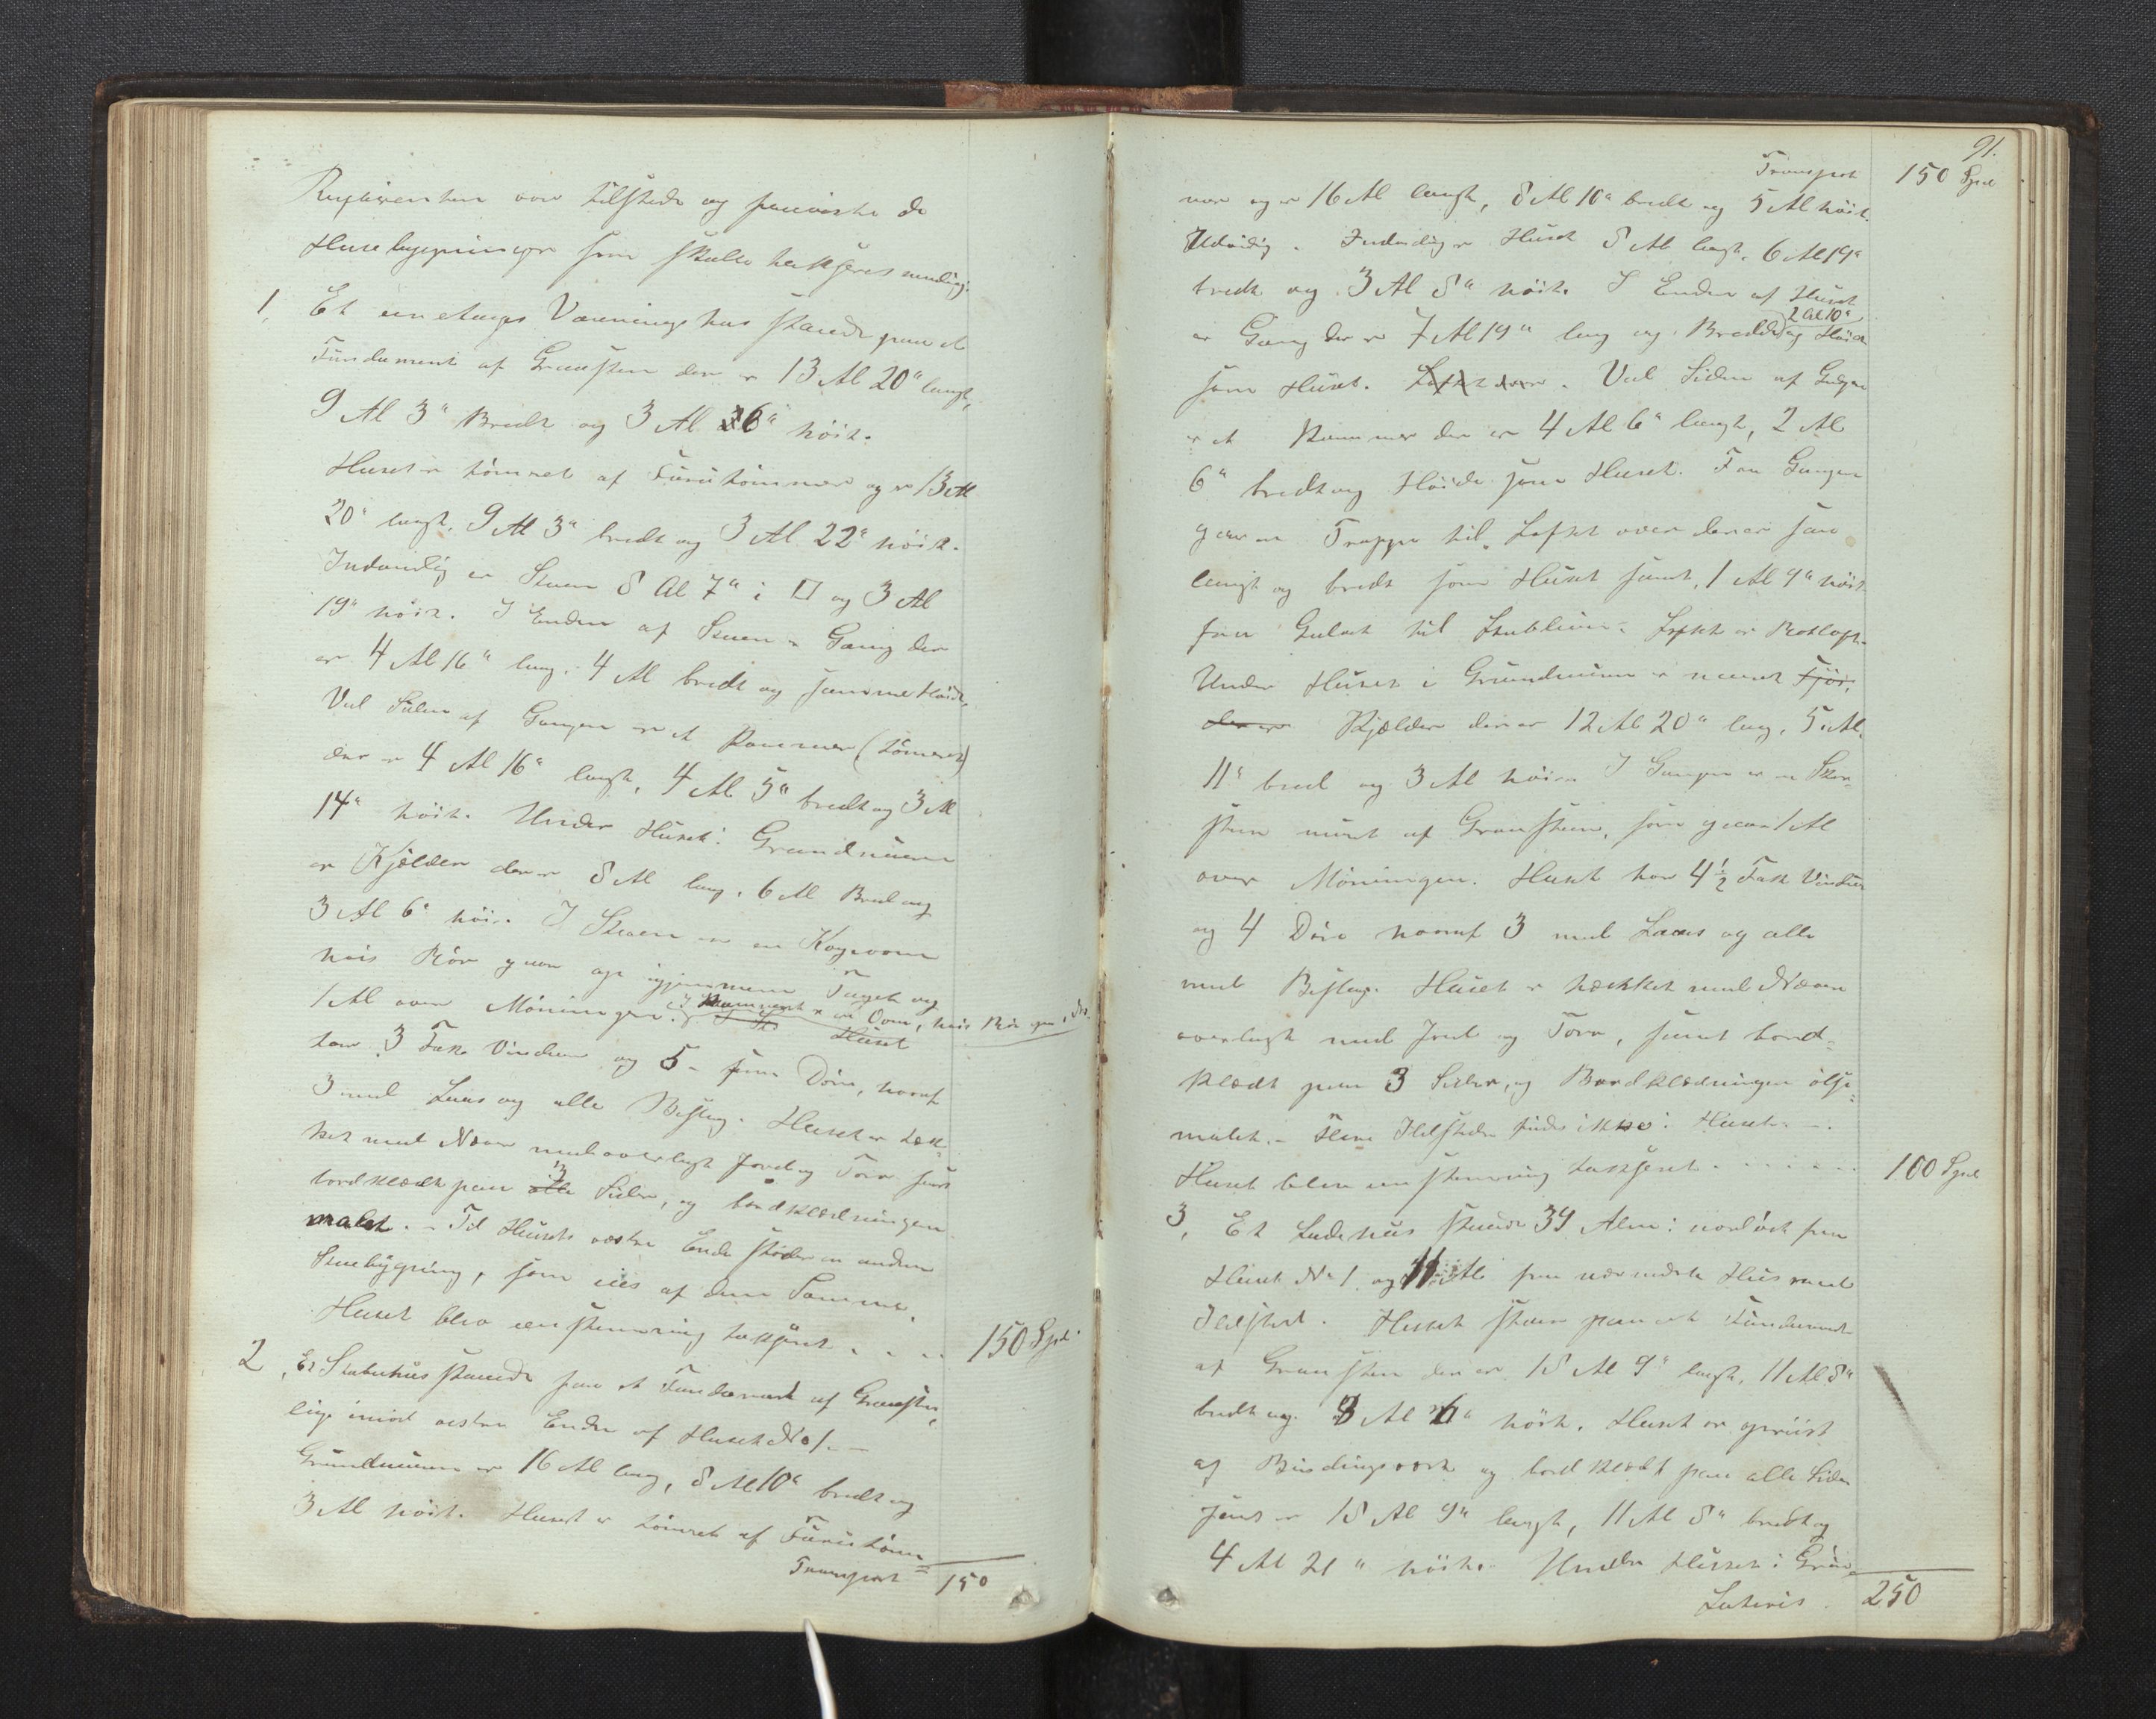 Reqvirenten var tilstede og paaviste de
Huse bygninger som skulle taxseres nemlig:
1, Et een etages Vaaningshus staaende paa et
Fundament af Graasten der er 13 Al 20" langt,
9 Al 3" Bredt og 3 Al 6" höit.
Huset er tömret af Furutömmer og er 13 Al
20" langt, 9 Al 3" bredt og 3 Al 22" höit.
Indvendig er Stuen 8 Al 7" i □ og 3 Al
19" höit. I Enden af Stuen er Gang der
er 4 Al 16" lang, 4 Al bredt og samme Höide,
Ved Siden af Gangen er et Kammer (tömret)
der er 4 Al 16" langt, 4 Al 5" bredt og 3 Al
14" höit. Under Huset i Grundmuren
er Kjelder der er 8 Al lang, 6 Al Bred og
3 Al 6" höi. I Stuen er en Kogeovn
hvis Rör gaar op igjennem Taget og
1 Al over Möningen. I Kammeret er en Ovn, hvis Rör gaar i do. Huset
har 3 Fak Vinduer og 5 Döre, hvoraf
3 med Laas og alle Beslag. Huset er tæk=
ket med Næver med overlagt Jord og Torv samt
bordklædt paa 3 Sider, og bordklædningen
malet. - Til Husets vestre Ende stöder en anden
Stuebygning, som eies af den Samme.
Huset blev eenstemmig taxseret . . . . 150 Spd.
2, Et Stuehus staaende paa et Fundament af Graasten,
lige imod vestre Enden af Huset No 1. -
Grundmuren er 16 Al lang, 8 Al 10" bredt og
3 Al höit. Huset er tömret af Furutöm=
Transport 150
91.
Transport 150 Spd
mer og er 16 Al langt, 8 Al 10" bredt og 5 Al höit.
Udvendig. Indvendig er Huset 8 Al langt, 6 Al 19"
bredt og 3 Al 8" höit. I Enden af Huset
er Gang der er 7 Al 19" lang og Bredde 2 Al 10" og Höide
som Huset. Loftet over. Ved Siden af Gangen
er et Kammer der er 4 Al 6" langt, 2 Al
6" bredt og Höide som Huset. Fra Gangen
gaar en Trappe til Loftet over der er saa
langt og bredt som Huset samt 1 Al 9" höit
fra Gulvet til
Under Huset i Grundmuren er muret Fjös,
der er Kjelder der er 12 Al 20" lang, 5 Al
11" bred og 3 Al höi. I Gangen er en Skor=
sten muret af Graasten, som gaar 1 Al
over Möningen. Huset har 4 1/2 Fak Vinduer
og 4 Döre hvoraf 3 med Laas og alle
med Beslag. Huset er tækket med Næver
overlagt med Jord og Torv, samt bord=
klædt paa 3 Sider, og Bordklædningen olje=
malet. - Flere Ildsteder findes ikke i Huset. -
Huset blev eenstemmig taxseret . . . . . . 100 Spd
3, Et Ladehus staaende 39 Alen i nordöst fra
Huset No 1 og 11 Al fra nærmeste Hus med
Ildsted. Huset staar paa et Fundament
af Graasten der er 18 Al 9" langt, 11 Al 8"
bredt og 3 Al 6" höit. Huset er opreist
af Bindingsværk og bordklædt paa alle Sider
samt er 18 Al 9" langt, 11 Al 8" bredt og
4 Al 21" höit. Under Huset i Grun=
Lateris . 250